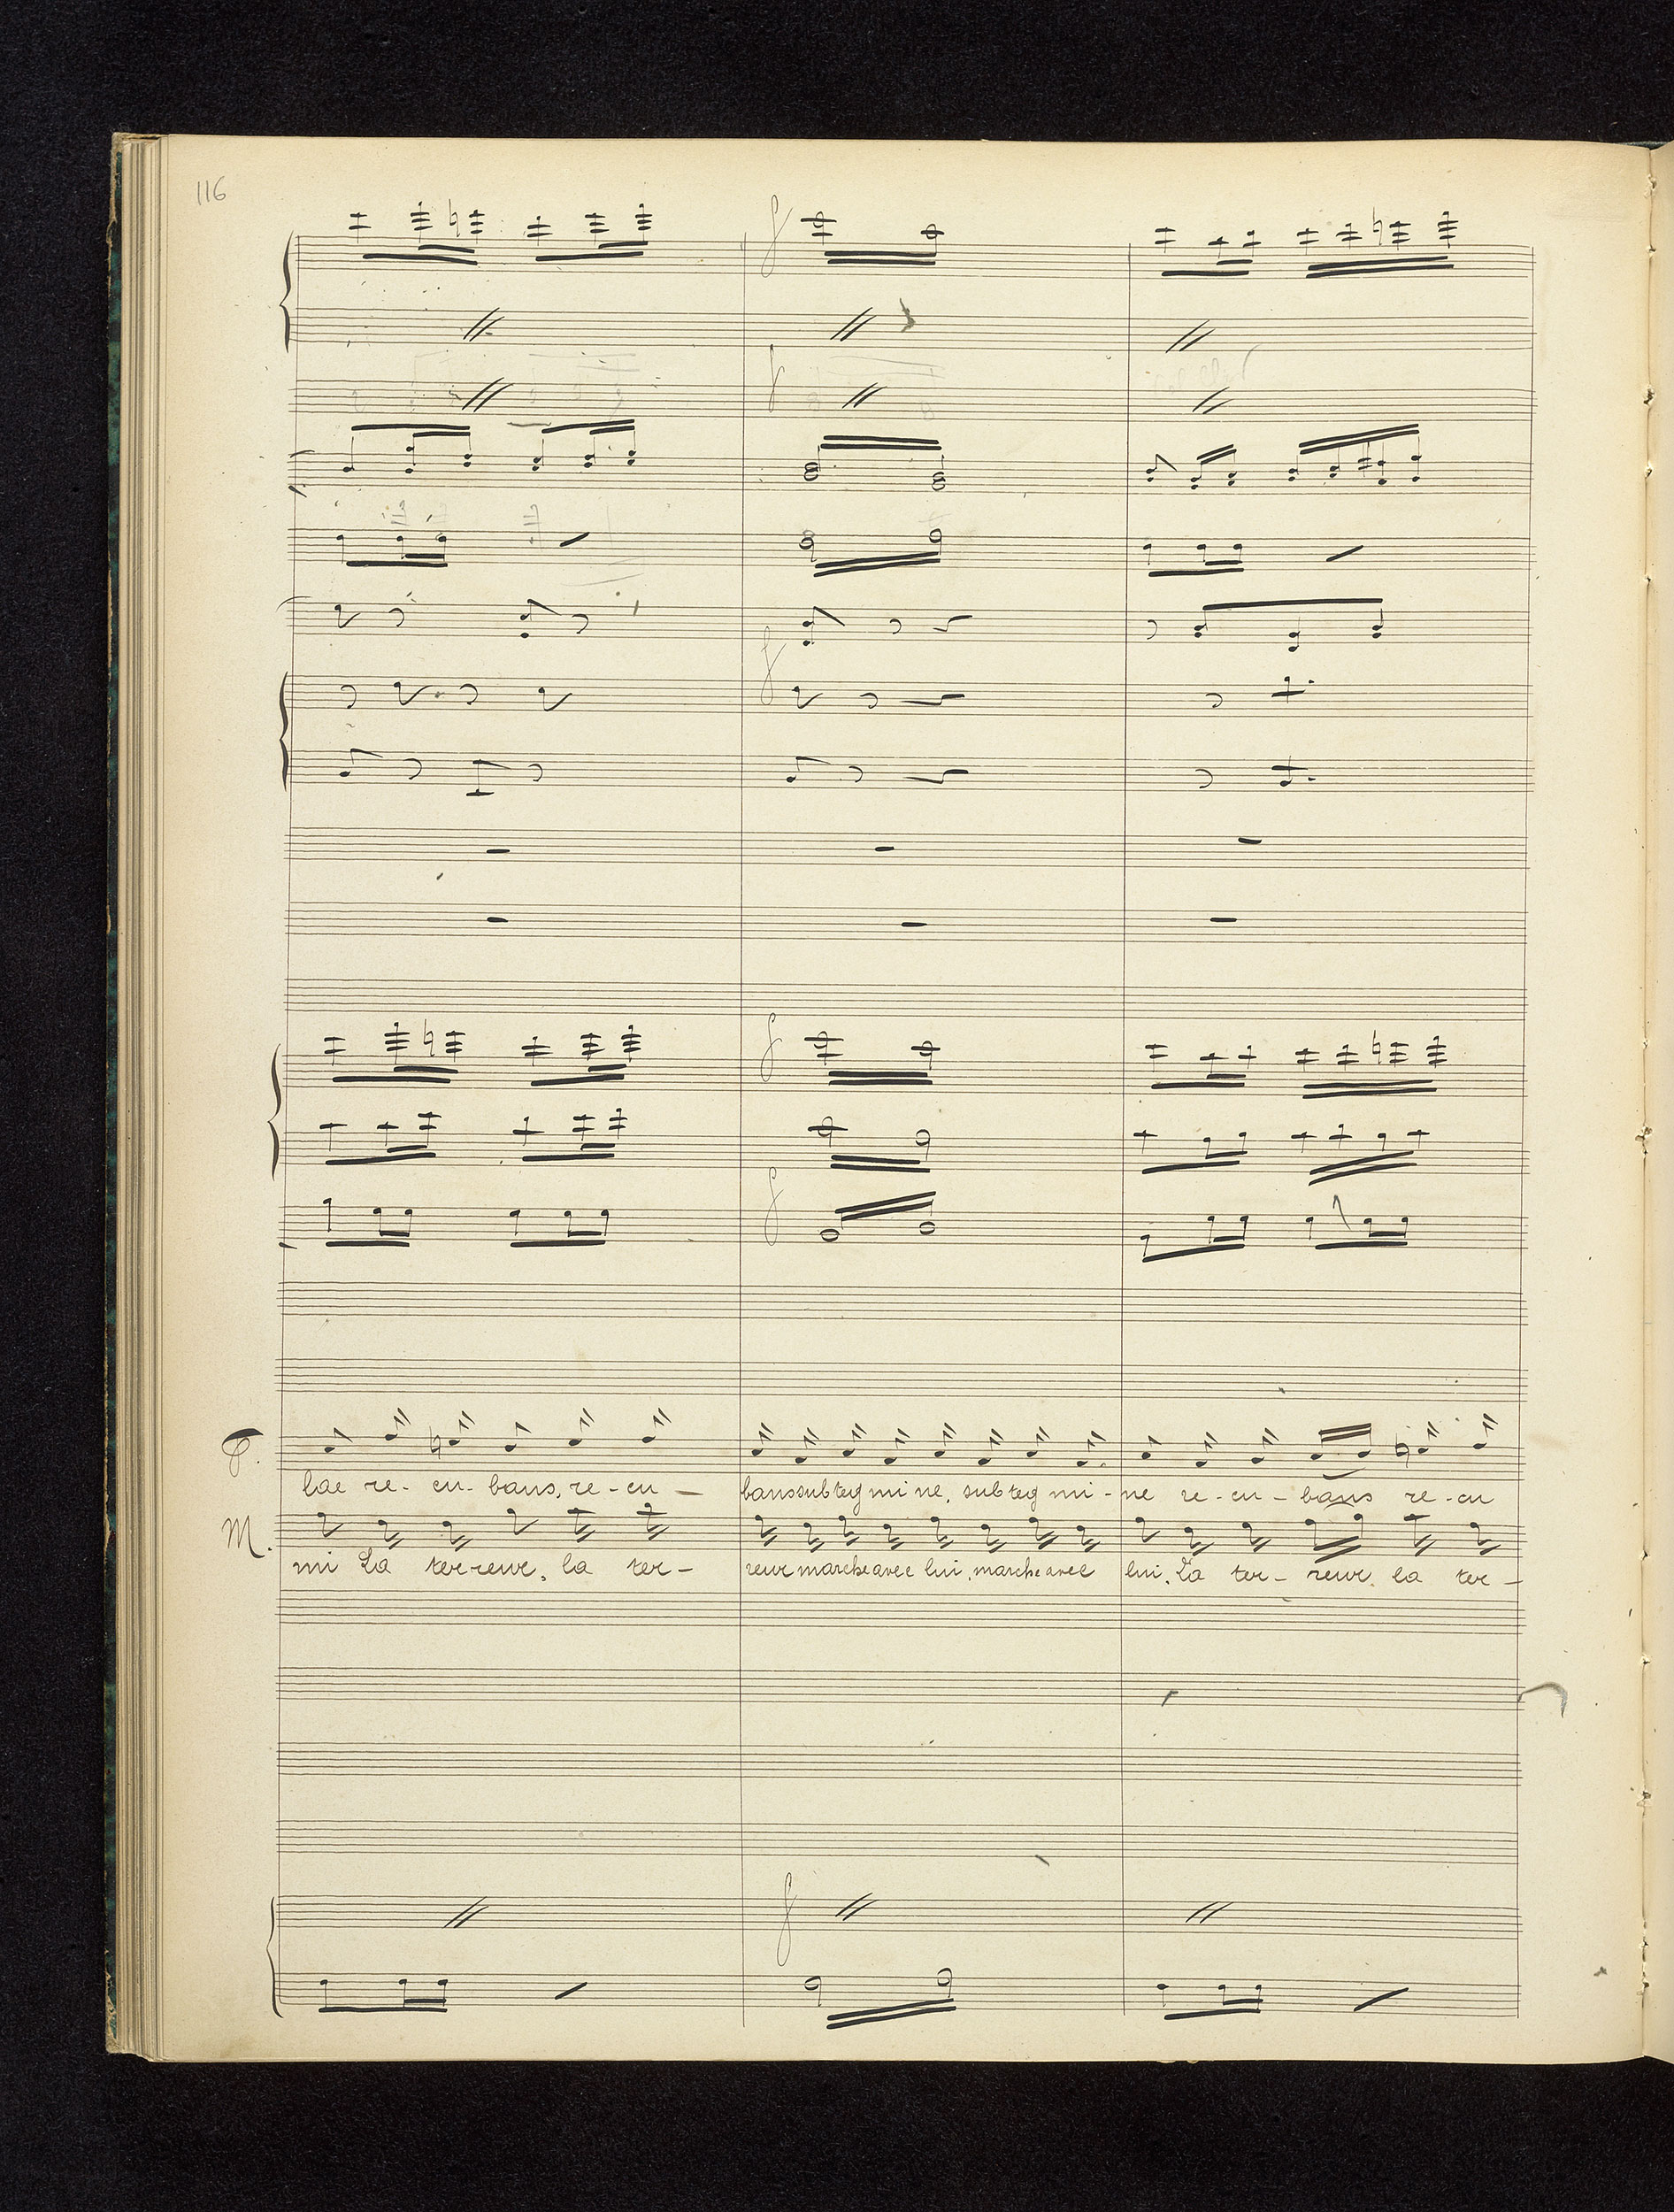 116
f
f
f
f
f
P.
lae re - cu - bans, re - cu — bans sub teg mi ne, sub teg mi - ne re - cu - bans re - cu
M.
mi La terreur, la ter - reur marche avec lui, marche avec lui. La ter - reur la ter -
f